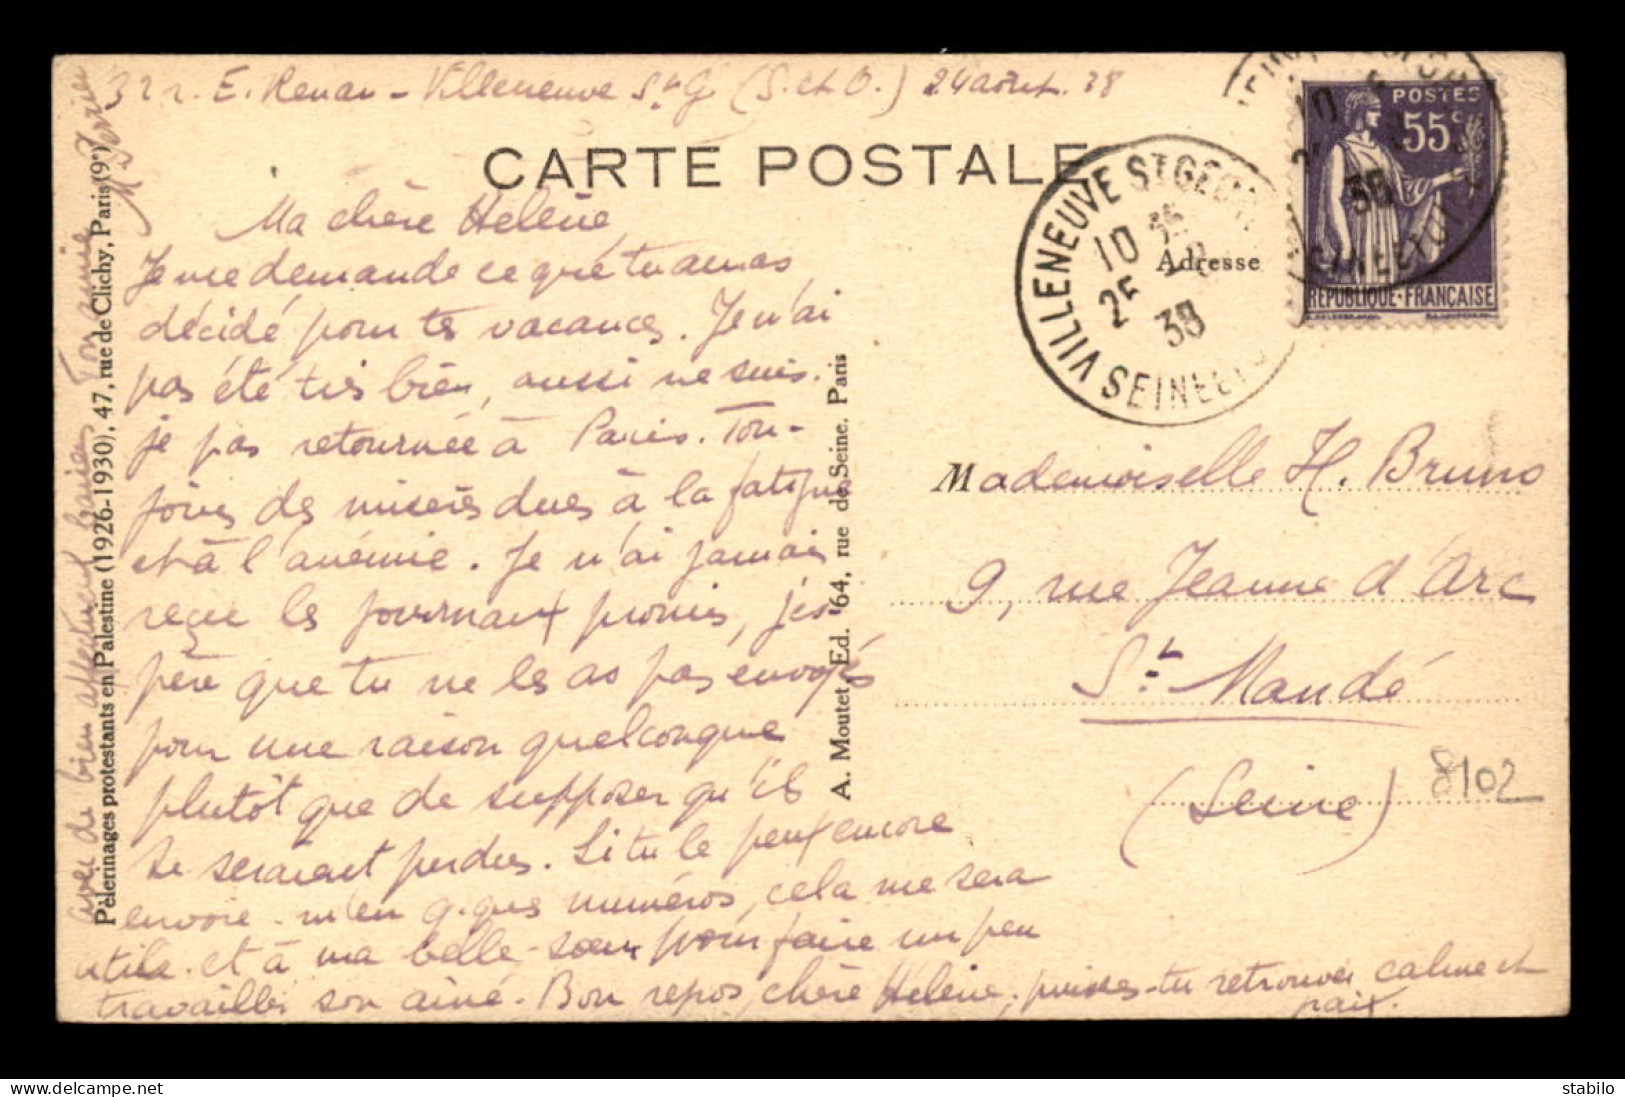 32 r. E. Renan - Villeneuve St G (S. et O.) 24 août. 38
CARTE POSTALE
Ma chère Hélène,
Je me demande ce que tu auras
décidé pour tes vacances. Je n'ai
pas été très bien, aussi ne suis-
je pas retournée à Paris. Tou-
jours des misères dues à la fatigue
et à l'anémie. Je n'ai jamais
reçu les journaux promis, j'es-
père que tu ne les as pas envoyés
pour une raison quelconque
plutôt que de supposer qu'ils
se seraient perdus. Si tu le peux encore
envoie-m'en q.ques numéros, cela me sera
utile et à ma belle-sœur pour faire un peu
travailler son aîné. Bon repos, chère Hélène, puisses-tu retrouver calme et
paix.
avec de bien affectueux baisers Ton amie
Pèlerinages protestants en Palestine (1926-1930), 47, rue de Clichy, Paris (9e)
A. Moutet, Ed. 64, rue de Seine. Paris
VILLENEUVE ST GEORGES
10 35
25
38
SEINE ET O
POSTES
55c
RÉPUBLIQUE-FRANÇAISE
Adresse
Mademoiselle H. Bruno
9, rue Jeanne d'Arc
St. Mandé
(Seine)
8102
www.delcampe.net
stabilo